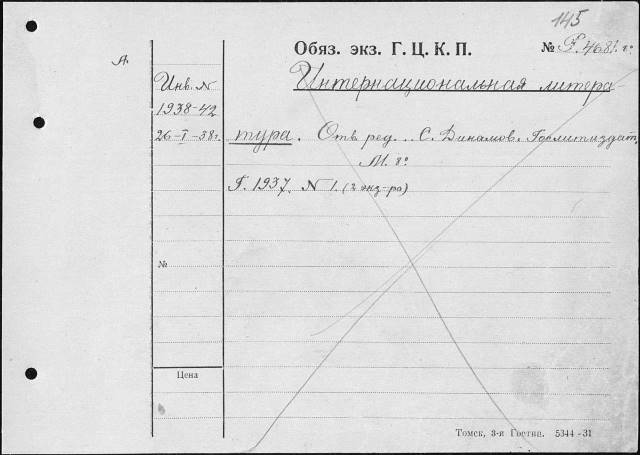 145
А.
Обяз. экз. Г. Ц. К. П. № Г. 468/. 8º
Инв. N
1938-42
26-I-38г.
Интернациональная литера-
тура. Отв. ред. С. Динамов. Гослитиздат,
М. 8º
Г. 1937. N 1. (2 экз-ра)
№
Цена
Томск, 3-я Гостип. 5344-31